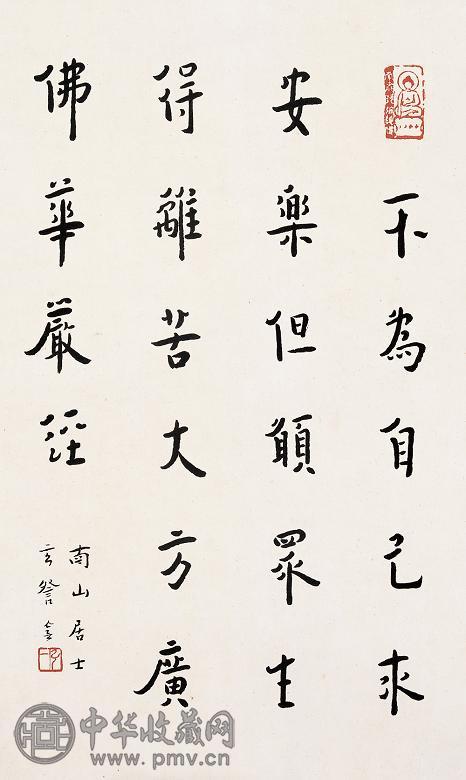 不為自己求
安樂但願眾生
得離苦大方廣
佛華嚴經
南山居士
玄詧書
中华收藏网
www.pmv.cn